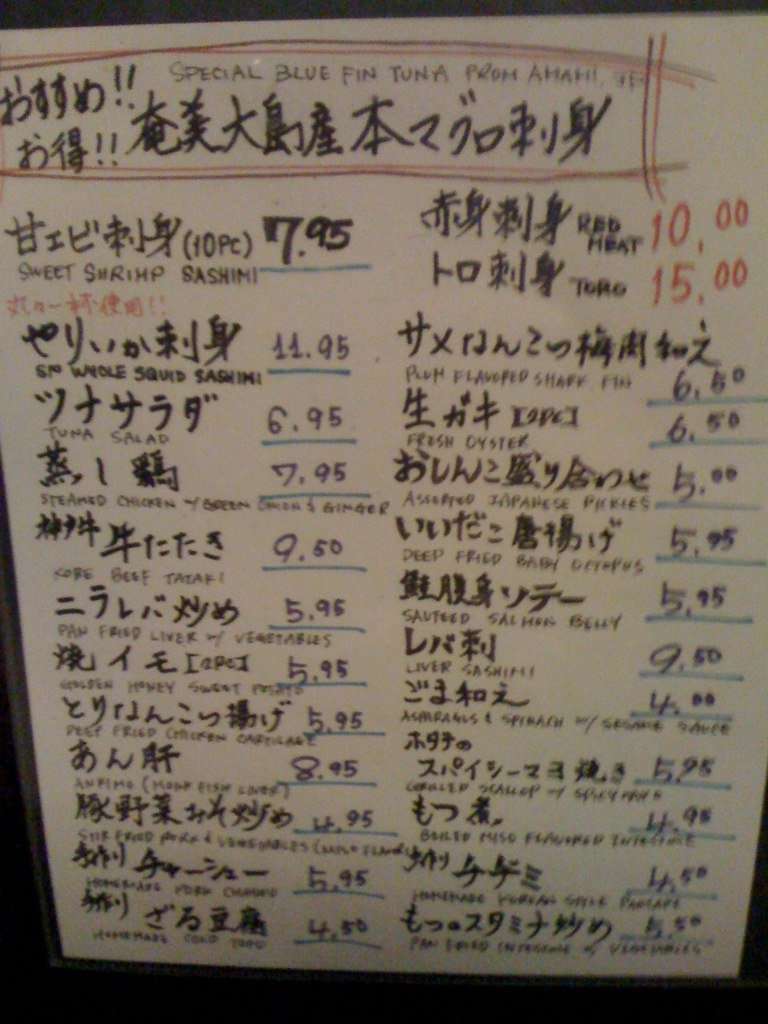 SPECIAL BLUE FIN TUNA FROM AMAMI,
おすすめ!!
お得!!
奄美大島産本マグロ刺身
甘エビ刺身(10PC) 7.95
SWEET SHRIMP SASHIMI
やりいか刺身 11.95
WHOLE SQUID SASHIMI
ツナサラダ 6.95
TUNA SALAD
蒸し鶏 7.95
STEAMED CHICKEN w/ GREEN ONION & GINGER
神戸牛 牛たたき 9.50
KOBE BEEF TATAKI
ニラレバ炒め 5.95
PAN FRIED LIVER w/ VEGETABLES
焼イモ[2PC] 5.95
GOLDEN HONEY SWEET POTATO
とりなんこつ揚げ 5.95
DEEP FRIED CHICKEN CARTILAGE
あん肝 8.95
ANKIMO (MONK FISH LIVER)
豚野菜みそ炒め 4.95
STIR FRIED PORK & VEGETABLES (MISO FLAVOR)
手作り チャーシュー 5.95
HOMEMADE PORK
手作り ざる豆腐 4.50
HOMEMADE COLD TOFU
赤身刺身 RED MEAT 10.00
トロ刺身 TORO 15.00
サメなんこつ梅肉和え 6.50
PLUM FLAVORED SHARK FIN
生ガキ[2PC] 6.50
FRESH OYSTER
おしんこ盛り合わせ 5.00
ASSORTED JAPANESE PICKLES
いいだこ唐揚げ 5.95
DEEP FRIED BABY OCTOPUS
鮭腹身ソテー 5.95
SAUTEED SALMON BELLY
レバ刺 9.50
LIVER SASHIMI
ごま和え 4.00
ASPARAGUS & SPINACH w/ SESAME SAUCE
ホタテの
スパイシーマヨ焼き 5.95
GRILLED SCALLOP w/ SPICY MAYO
もつ煮 4.95
BOILED MISO FLAVORED INTESTINE
手作り チヂミ 4.50
HOMEMADE KOREAN STYLE PANCAKE
もつのスタミナ炒め 5.50
PAN FRIED INTESTINE w/ VEGETABLES